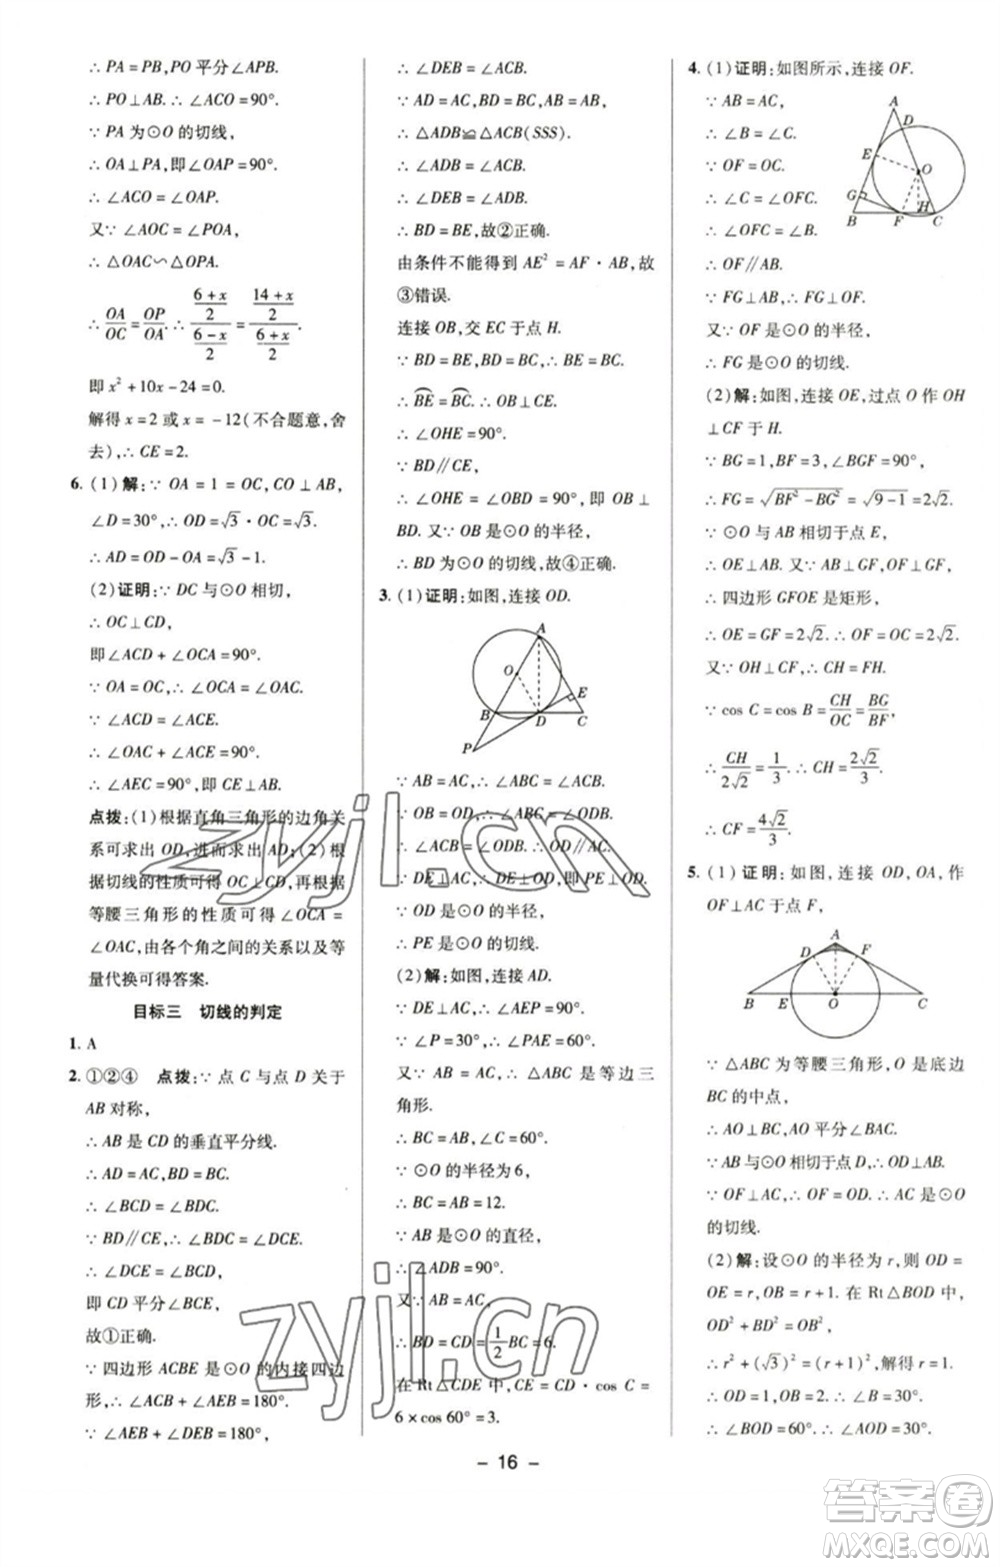 ∴ PA = PB, PO 平分∠APB.
∴ PO⊥AB. ∴ ∠ACO = 90°.
∵ PA 为⊙O 的切线,
∴ OA⊥PA,即∠OAP = 90°.
∴ ∠ACO = ∠OAP.
又∵ ∠AOC = ∠POA,
∴ △OAC∽△OPA.
∴ OA/OC = OP/OA. ∴ ((6+x)/2)/((6−x)/2) = ((14+x)/2)/((6+x)/2),
即 x² + 10x − 24 = 0.
解得 x = 2 或 x = −12(不合题意,舍
去), ∴ CE = 2.
6. (1) 解: ∵ OA = 1 = OC, CO⊥AB,
∠D = 30°, ∴ OD = √3 · OC = √3.
∴ AD = OD − OA = √3 − 1.
(2) 证明: ∵ DC 与⊙O 相切,
∴ OC⊥CD,
即∠ACD + ∠OCA = 90°.
∵ OA = OC, ∴ ∠OCA = ∠OAC.
∵ ∠ACD = ∠ACE,
∴ ∠OAC + ∠ACE = 90°.
∴ ∠AEC = 90°,即 CE⊥AB.
点拨: (1) 根据直角三角形的边角关
系可求出 OD,进而求出 AD; (2) 根
据切线的性质可得 OC⊥CD,根据
等腰三角形的性质可得∠OCA =
∠OAC,由各个角之间的关系以及等
量代换可得答案.
目标三 切线的判定
1. A
2. ①②④ 点拨: ∵ 点 C 与点 D 关于
AB 对称,
∴ AB 是 CD 的垂直平分线.
∴ AD = AC, BD = BC.
∴ ∠BCD = ∠BDC.
∵ BD∥CE, ∴ ∠BDC = ∠DCE.
∴ ∠DCE = ∠BCD,
即 CD 平分∠BCE,
故①正确.
∵ 四边形 ACBE 是⊙O 的内接四边
形, ∴ ∠ACB + ∠AEB = 180°.
∵ ∠AEB + ∠DEB = 180°,
∴ ∠DEB = ∠ACB.
∵ AD = AC, BD = BC, AB = AB,
∴ △ADB≌△ACB(SSS).
∴ ∠ADB = ∠ACB.
∴ ∠DEB = ∠ADB.
∴ BD = BE,故②正确.
由条件不能得到 AE² = AF · AB,故
③错误.
连接 OB,交 EC 于点 H.
∵ BD = BE, BD = BC, ∴ BE = BC.
∴ B͡E = B͡C. ∴ OB⊥CE.
∴ ∠OHE = 90°.
∵ BD∥CE,
∴ ∠OHE = ∠OBD = 90°,即 OB⊥
BD. 又∵ OB 是⊙O 的半径,
∴ BD 为⊙O 的切线,故④正确.
3. (1) 证明:如图,连接 OD.
A
O
E
B
D
C
P
∵ AB = AC, ∴ ∠ABC = ∠ACB.
∵ OB = OD, ∴ ∠ABC = ∠ODB.
∴ ∠ACB = ∠ODB. ∴ OD∥AC.
∵ DE⊥AC, ∴ DE⊥OD,即 PE⊥OD.
∵ OD 是⊙O 的半径,
∴ PE 是⊙O 的切线.
(2) 解:如图,连接 AD.
∵ DE⊥AC, ∴ ∠AEP = 90°.
∵ ∠P = 30°, ∴ ∠PAE = 60°.
又∵ AB = AC, ∴ △ABC 是等边三
角形.
∴ BC = AB, ∠C = 60°.
∵ ⊙O 的半径为 6,
∴ BC = AB = 12.
∵ AB 是⊙O 的直径,
∴ ∠ADB = 90°.
又∵ AB = AC,
∴ BD = CD = 1/2 BC = 6.
在 Rt△CDE 中, CE = CD · cos C =
6 × cos 60° = 3.
4. (1) 证明:如图所示,连接 OF.
∵ AB = AC,
∴ ∠B = ∠C.
∵ OF = OC.
∴ ∠C = ∠OFC.
∴ ∠OFC = ∠B.
∴ OF∥AB.
A
D
E
O
G
H
B
F
C
∵ FG⊥AB, ∴ FG⊥OF.
又∵ OF 是⊙O 的半径,
∴ FG 是⊙O 的切线.
(2) 解:如图,连接 OE,过点 O 作 OH
⊥CF 于 H.
∵ BG = 1, BF = 3, ∠BGF = 90°,
∴ FG = √(BF² − BG²) = √(9 − 1) = 2√2.
∵ ⊙O 与 AB 相切于点 E,
∴ OE⊥AB. 又∵ AB⊥GF, OF⊥GF,
∴ 四边形 GFOE 是矩形,
∴ OE = GF = 2√2. ∴ OF = OC = 2√2.
又∵ OH⊥CF, ∴ CH = FH.
∵ cos C = cos B = CH/OC = BG/BF,
∴ CH/2√2 = 1/3. ∴ CH = 2√2/3.
∴ CF = 4√2/3.
5. (1) 证明:如图,连接 OD, OA,作
OF⊥AC 于点 F,
A
D
F
E
B
O
C
∵ △ABC 为等腰三角形, O 是底边
BC 的中点,
∴ AO⊥BC, AO 平分∠BAC.
∵ AB 与⊙O 相切于点 D, ∴ OD⊥AB.
∵ OF⊥AC, ∴ OF = OD. ∴ AC 是⊙O
的切线.
(2) 解:设⊙O 的半径为 r,则 OD =
OE = r, OB = r + 1. 在 Rt△BOD 中,
OD² + BD² = OB²,
∴ r² + (√3)² = (r + 1)²,解得 r = 1.
∴ OD = 1, OB = 2. ∴ ∠B = 30°.
∴ ∠BOD = 60°. ∴ ∠AOD = 30°.
– 16 –
zyjl.cn
zyjl.cn
答案卷
MXQE.COM